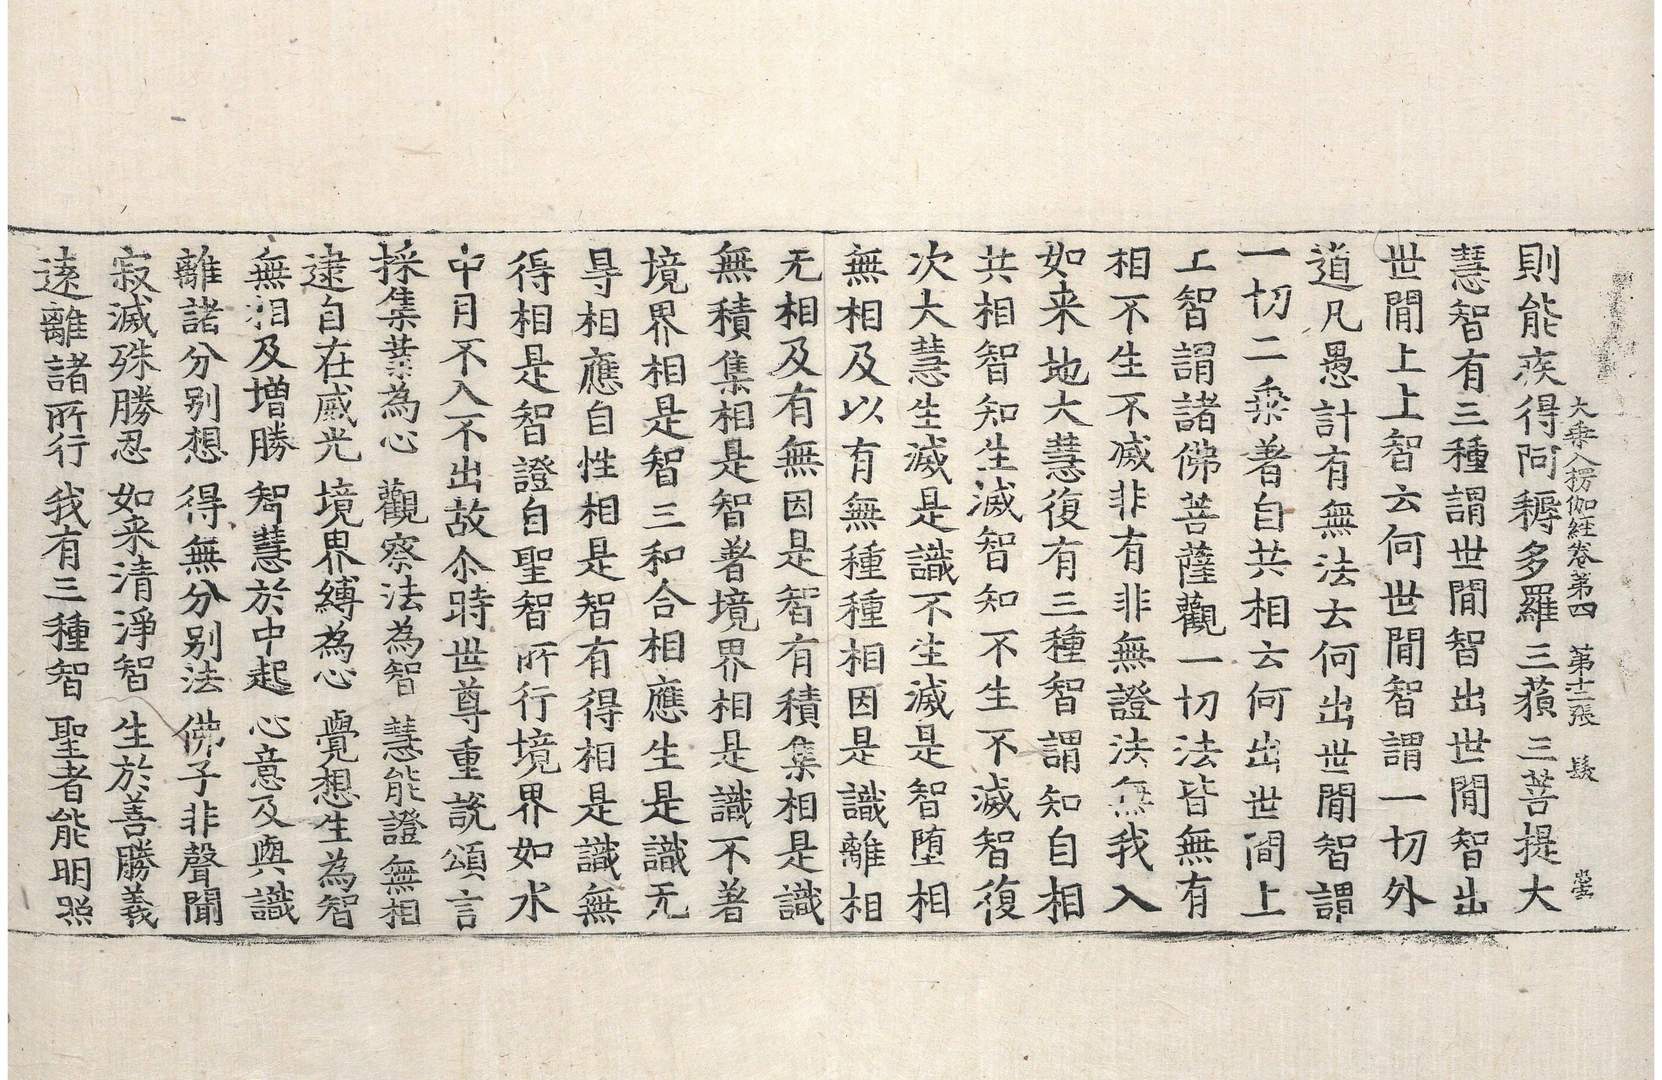 大乘入楞伽經卷第四 第十二張 髮
則能疾得阿耨多羅三藐三菩提大
慧智有三種謂世閒智出世閒智出
世閒上上智云何世閒智謂一切外
道凡愚計有無法云何出世閒智謂
一切二乘著自共相云何出世閒上
上智謂諸佛菩薩觀一切法皆無有
相不生不滅非有非無證法無我入
如来地大慧復有三種智謂知自相
共相智知生滅智知不生不滅智復
次大慧生滅是識不生滅是智墮相
無相及以有無種種相因是識離相
无相及有無因是智有積集相是識
無積集相是智著境界相是識不著
境界相是智三和合相應生是識无
㝵相應自性相是智有得相是識無
得相是智證自聖智所行境界如水
中月不入不出故尒時世尊重說頌言
採集業為心 觀察法為智 慧能證無相
逮自在威光 境界縛為心 覺想生為智
無相及增勝 智慧於中起 心意及與識
離諸分别想 得無分别法 佛子非聲聞
寂滅殊勝忍 如来清淨智 生於善勝義
遠離諸所行 我有三種智 聖者能明照